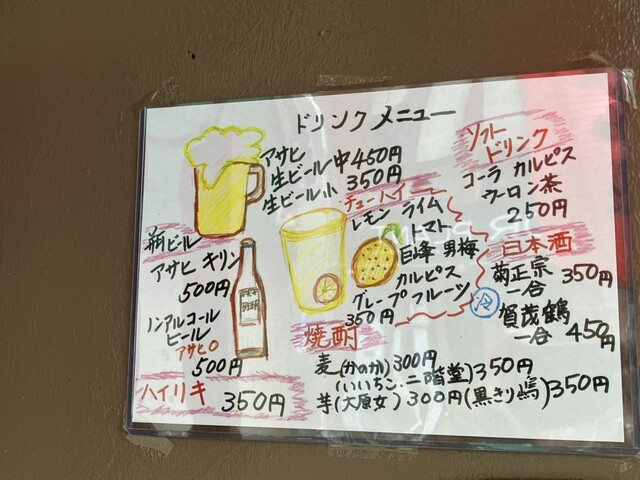 ドリンクメニュー
アサヒ
生ビール中450円
生ビール小 350円
瓶ビール
アサヒ キリン
500円
ノンアルコール
ビール
アサヒ
500円
ハイリキ 350円
チューハイ
レモン ライム
トマト
巨峰 男梅
カルピス
グレープフルーツ
350円
ソフト
ドリンク
コーラ カルピス
ウーロン茶
250円
日本酒
菊正宗
一合 350円
賀茂鶴
一合 450円
焼酎
麦(かのか)300円
(いいちこ・二階堂)350円
芋(大原女)300円(黒きり島)350円